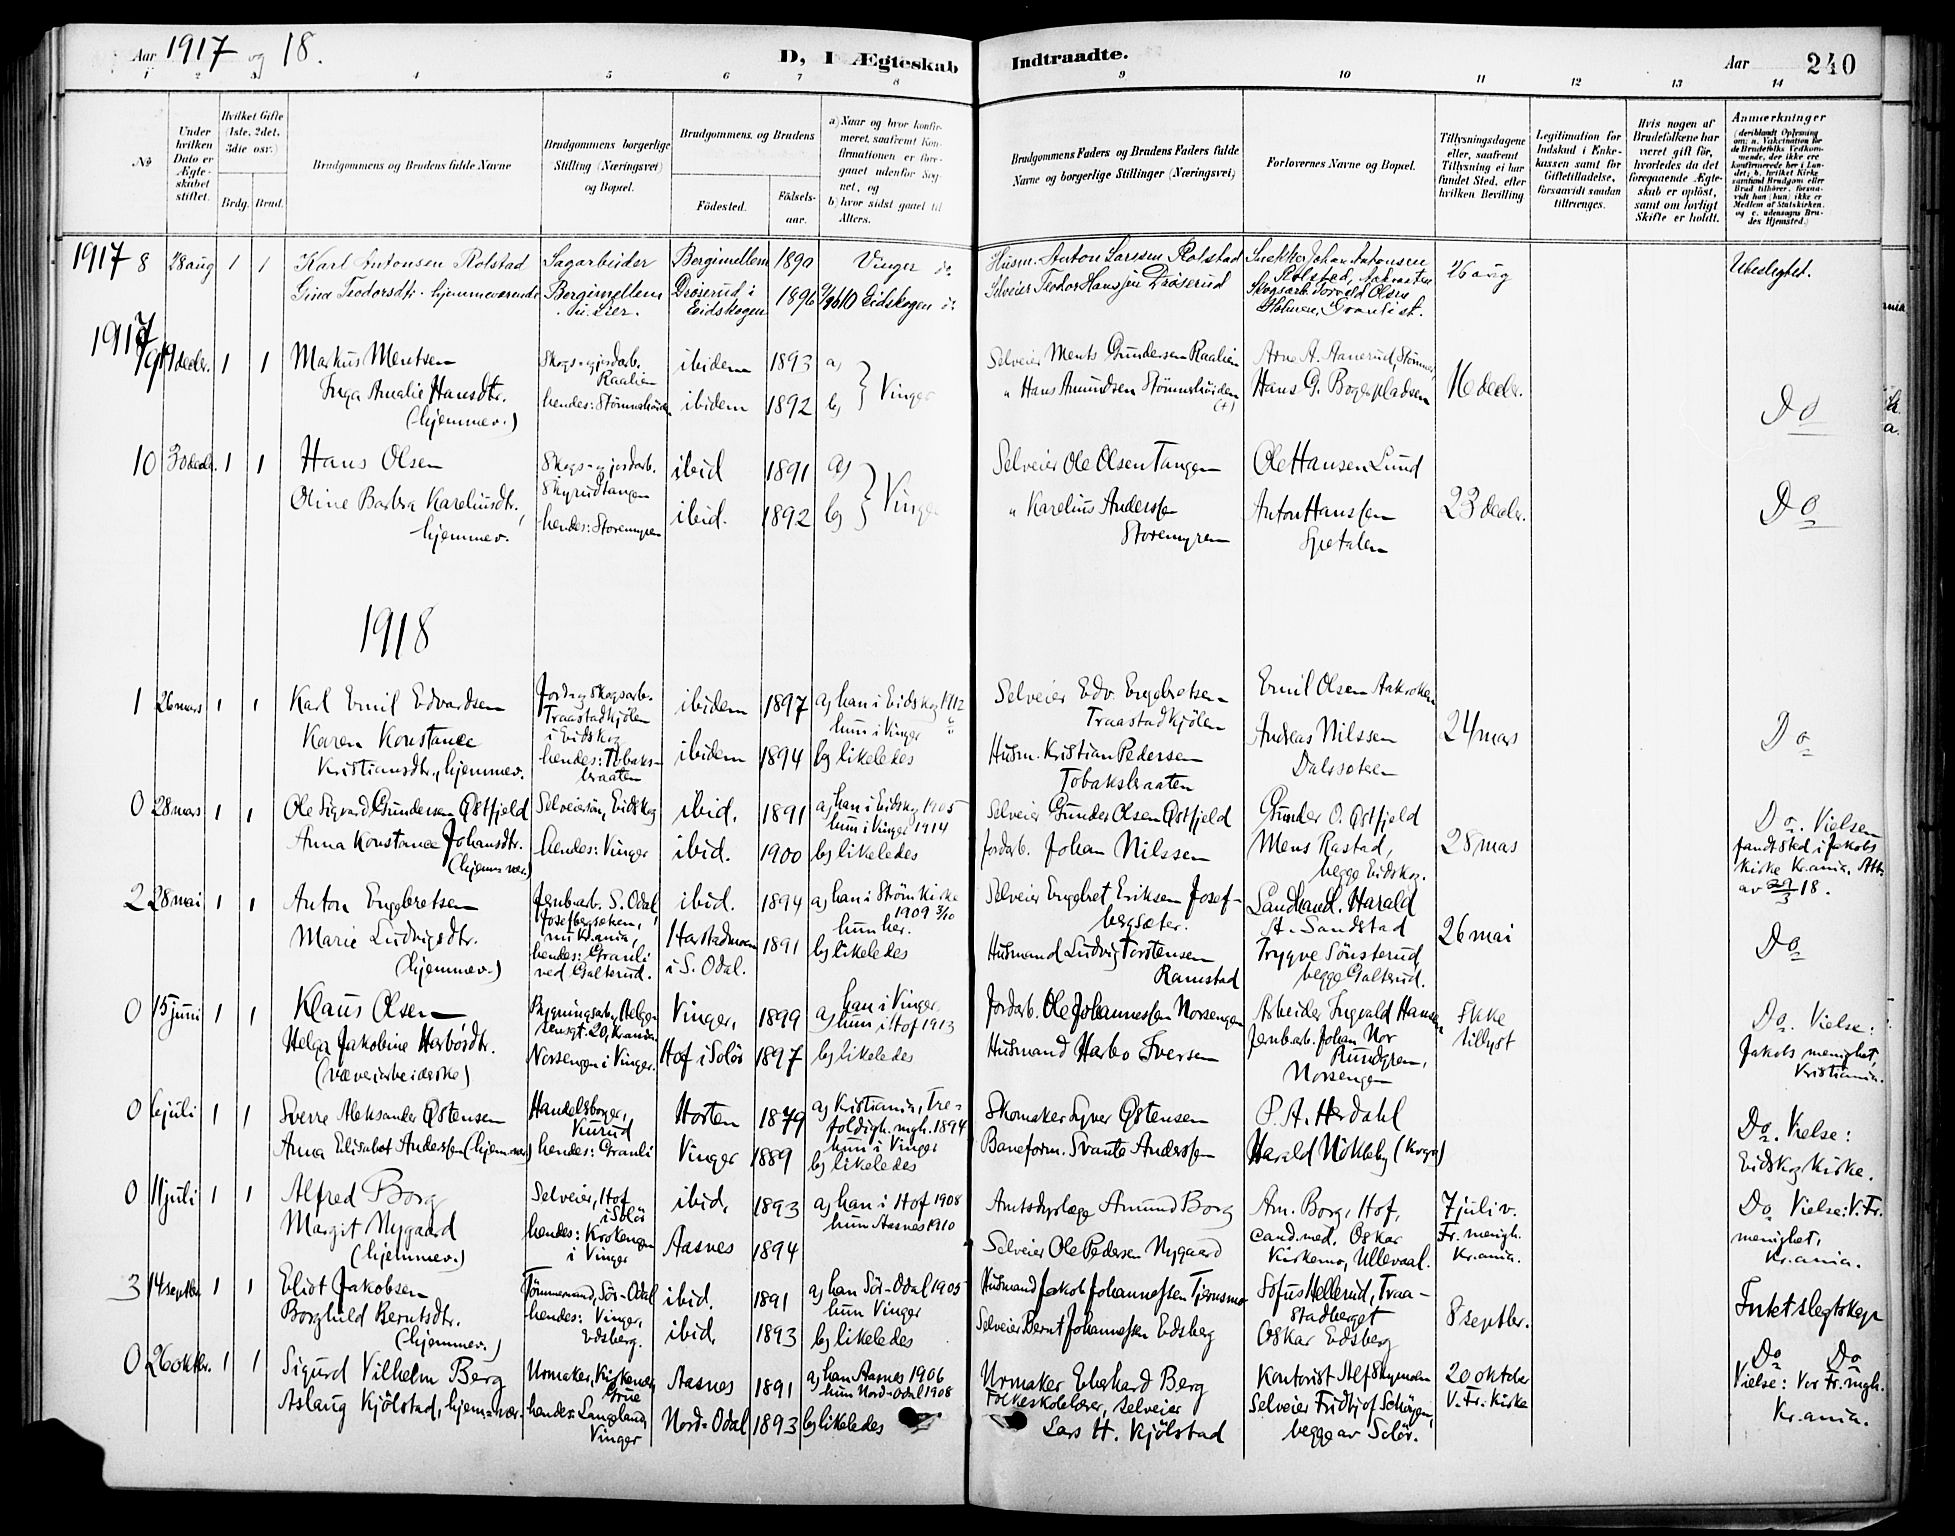 Aar 1917 og 18.
D, I Ægteskab Indtraadte.
Aar 240
1 2 3 4 5 6 7 8 9 10 11 12 13 14
No
Under hvilken Dato er Ægteskabet stiftet.
Hvilket Gifte (1ste, 2det, 3die osv.)
Brdg. Brud.
Brudgommens og Brudens fulde Navne
Brudgommens borgerlige Stilling (Næringsvei) og Bopæl.
Brudgommens og Brudens
Fødested.
Fødselsaar.
a) Naar og hvor konfirmeret, saafremt Konfirmationen er foregaaet udenfor Sognet, og
b) hvor sidst gaaet til Alters.
Brudgommens Faders og Brudens Faders fulde Navne og borgerlige Stillinger (Næringsvei)
Forlovernes Navne og Bopæl.
Tillysningsdagene eller, saafremt Tillysning ei har fundet Sted, efter hvilken Bevilling
Legitimation for Indskud i Enkekassen samt for Giftetilladelse, forsaavidt saadan tiltrænges.
Hvis nogen af Brudefolkene har været gift før, hvorledes da det foregaaende Ægteskab er opløst, samt om lovligt Skifte er holdt.
Anmerkninger
1917 8 28 aug 1 1
Karl Antonsen Rolstad
Gina Teodorsdtr. hjemmeværende
Sagarbeider
Bergimellem
Bergimellem 1890 Vinger
Drøserud i Eidskogen 1896 Eidskogen
Husm. Anton Larssen Rolstad
Selveier Teodor Hanssen Drøserud
Snekker Johan Antonsen
Rolstad
Skogsarb. Torvald Olsen
26 aug
Ubeslegtet.
1917
9 1 1
Markus Mentsen
Inga Amalie Hansdtr.
(hjemmev.)
Skogs- og jordarb.
Raalien
hendes: Strømshøiden
ibidem 1893 a)
ibidem 1892 b) } Vinger
Selveier Ments Gundersen Raalien
" Hans Amundsen Strømshøiden
(+)
Arne A. Aanerud,
Hans G. Bogerpladsen
16 decbr.
Do
10 30 decbr. 1 1
Hans Olsen
Oline Barbra Kareliusdtr.,
hjemmev.
Skogs- og jordarb.
Skyrudtangen
hendes: Storemyren
ibid 1891 a)
ibid. 1892 b) } Vinger
Selveier Ole Olsen Tangen
" Karelius Anderssen
Storemyren
Ole Hansen Lund
Anton Hanssen
Spetalen
23 decbr.
Do
1918
1 26 mars 1 1
Karl Emil Edvardsen
Karen Konstance
Kristiansdtr., hjemmev.
Jord og Skogsarb.
Traastadkjølen
i Eidskog
hendes: Tobaksbraaten
ibidem 1897 a) han i Eidskog 1912
hun i Vinger
ibidem 1894 b) likeledes
Selveier Edv. Engebretsen
Traastadkjølen
Husm. Kristian Pedersen
Tobaksbraaten
Emil Olsen Aakroken
Andreas Nilssen
24 mars
Do
0 28 mars 1 1
Ole Sigvard Gundersen Østfjeld
Anna Konstance Johansdtr.
(hjemmevær.)
Selveiersøn, Eidskog
hendes: Vinger
ibid. 1891 a) han i Eidskog 1905
hun i Vinger 1914
ibid. 1900 b) likeledes
Selveier Gunder Olsen Østfjeld
Jordarb. Johan Nilssen
Gunder O. Østfjeld
Mens Rastad,
begge Eidskog.
28 mars
Do. Vielsen
fandt sted i Jakobs
kirke Kr.ania. Att.
av 29/3 18.
2 28 mai 1 1
Anton Engebretsen
Marie Ludvigsdtr.
(hjemmev.)
Jernb.arb. S. Odal
Josefbergsæteren,
nu Kr.ania,
hendes: Granli
ved Galterud.
ibid. 1894 a) han i Strøm kirke
1909 3/10
hun her.
Harstadmoen
i S. Odal. 1891 b) likeledes
Selveier Engebret Eriksen Josefbergsæter.
Husmand Ludvig Torstensen
Ramstad
Landhand. Harald
A. Sandstad
Trygve Sønsterud,
begge Galterud.
26 mai
Do
0 15 juni 1 1
Klaus Olsen
Helga Jakobine Harbosdtr.
(væveiarbeiderske)
Bygningsarb., Helgesensgt. 20, Kr.ania
Norsengen i Vinger.
Vinger, 1899 a) han i Vinger,
hun i Hof 1913
Hof i Solør 1897 b) likeledes
Jordarb. Ole Johannessen Norsengen
Husmand Harbo Iversen
Arbeider Ingvald Hansen
Jernb.arb. Johan Nor
Rundgren,
Norsengen
Ikke
tillyst
Do. Vielse:
Jakobs menighet,
Kristiania.
0 6 juli 1 1
Sverre Aleksander Østensen
Anna Elisabet Anderssen (hjemmevær.)
Handelsborger,
hendes: Granli
Horten 1879 a) Kristiania, Trefoldigh. mgh. 1894
hun i Vinger
Vinger 1889 b) likeledes
Skomaker Syver Østensen
Baneform. Svante Anderssen
P. A. Herdahl
Harald Nökleby
Do. Vielse:
Eidskog kirke.
0 11 juli 1 1
Alfred Borg
Margit Nygaard
(hjemmev.)
Selveier, Hof
i Solør
hendes: Krokengen
i Vinger
ibid, 1893 a) han i Hof 1908
hun Aasnes 1910
Aasnes 1894
Amtsdyrlæge Amund Borg
Selveier Ole Pedersen Nygaard
Am. Borg, Hof,
cand. med. Oskar
Kirkemo, Ullevaal.
7 juli v.
Fr. menigh.
Kr.ania.
Do Vielse: V. Fr.
menighet,
Kr.ania.
3 14 septbr. 1 1
Eliot Jakobsen
Borghild Berntsdtr.
(hjemmev.)
Tømmermand, Sør-Odal
hendes: Vinger,
Edsberg.
ibid. 1891 a) han Sør-Odal 1905
hun Vinger
ibid, 1893 b) likeledes
Husmand Jakob Johannessen Tjernsmo
Selveier Bernt Johannessen Edsberg
Sofus Hellerud, Traastadberget
Oskar Edsberg
8 septbr.
Intet slegtskap
0 26 oktbr. 1 1
Sigurd Vilhelm Berg
Aslaug Kjölstad, hjemmevær.
Urmaker, Kirkenær,
Grue
hendes: Langeland,
Vinger
Aasnes 1891 a) han Aasnes 1906
hun Nord-Odal 1908
Nord-Odal 1893 b) likeledes
Urmaker Eberhard Berg
Folkeskolelærer, selveier
Lars H. Kjölstad
Kontorist Alf Skymoen
Selveier Fridtjof Schöyen,
begge av Solør.
20 oktober
V. Fr. Kirke
Do Do
Vielse: Vor Fr. mgh.
Kr.ania.